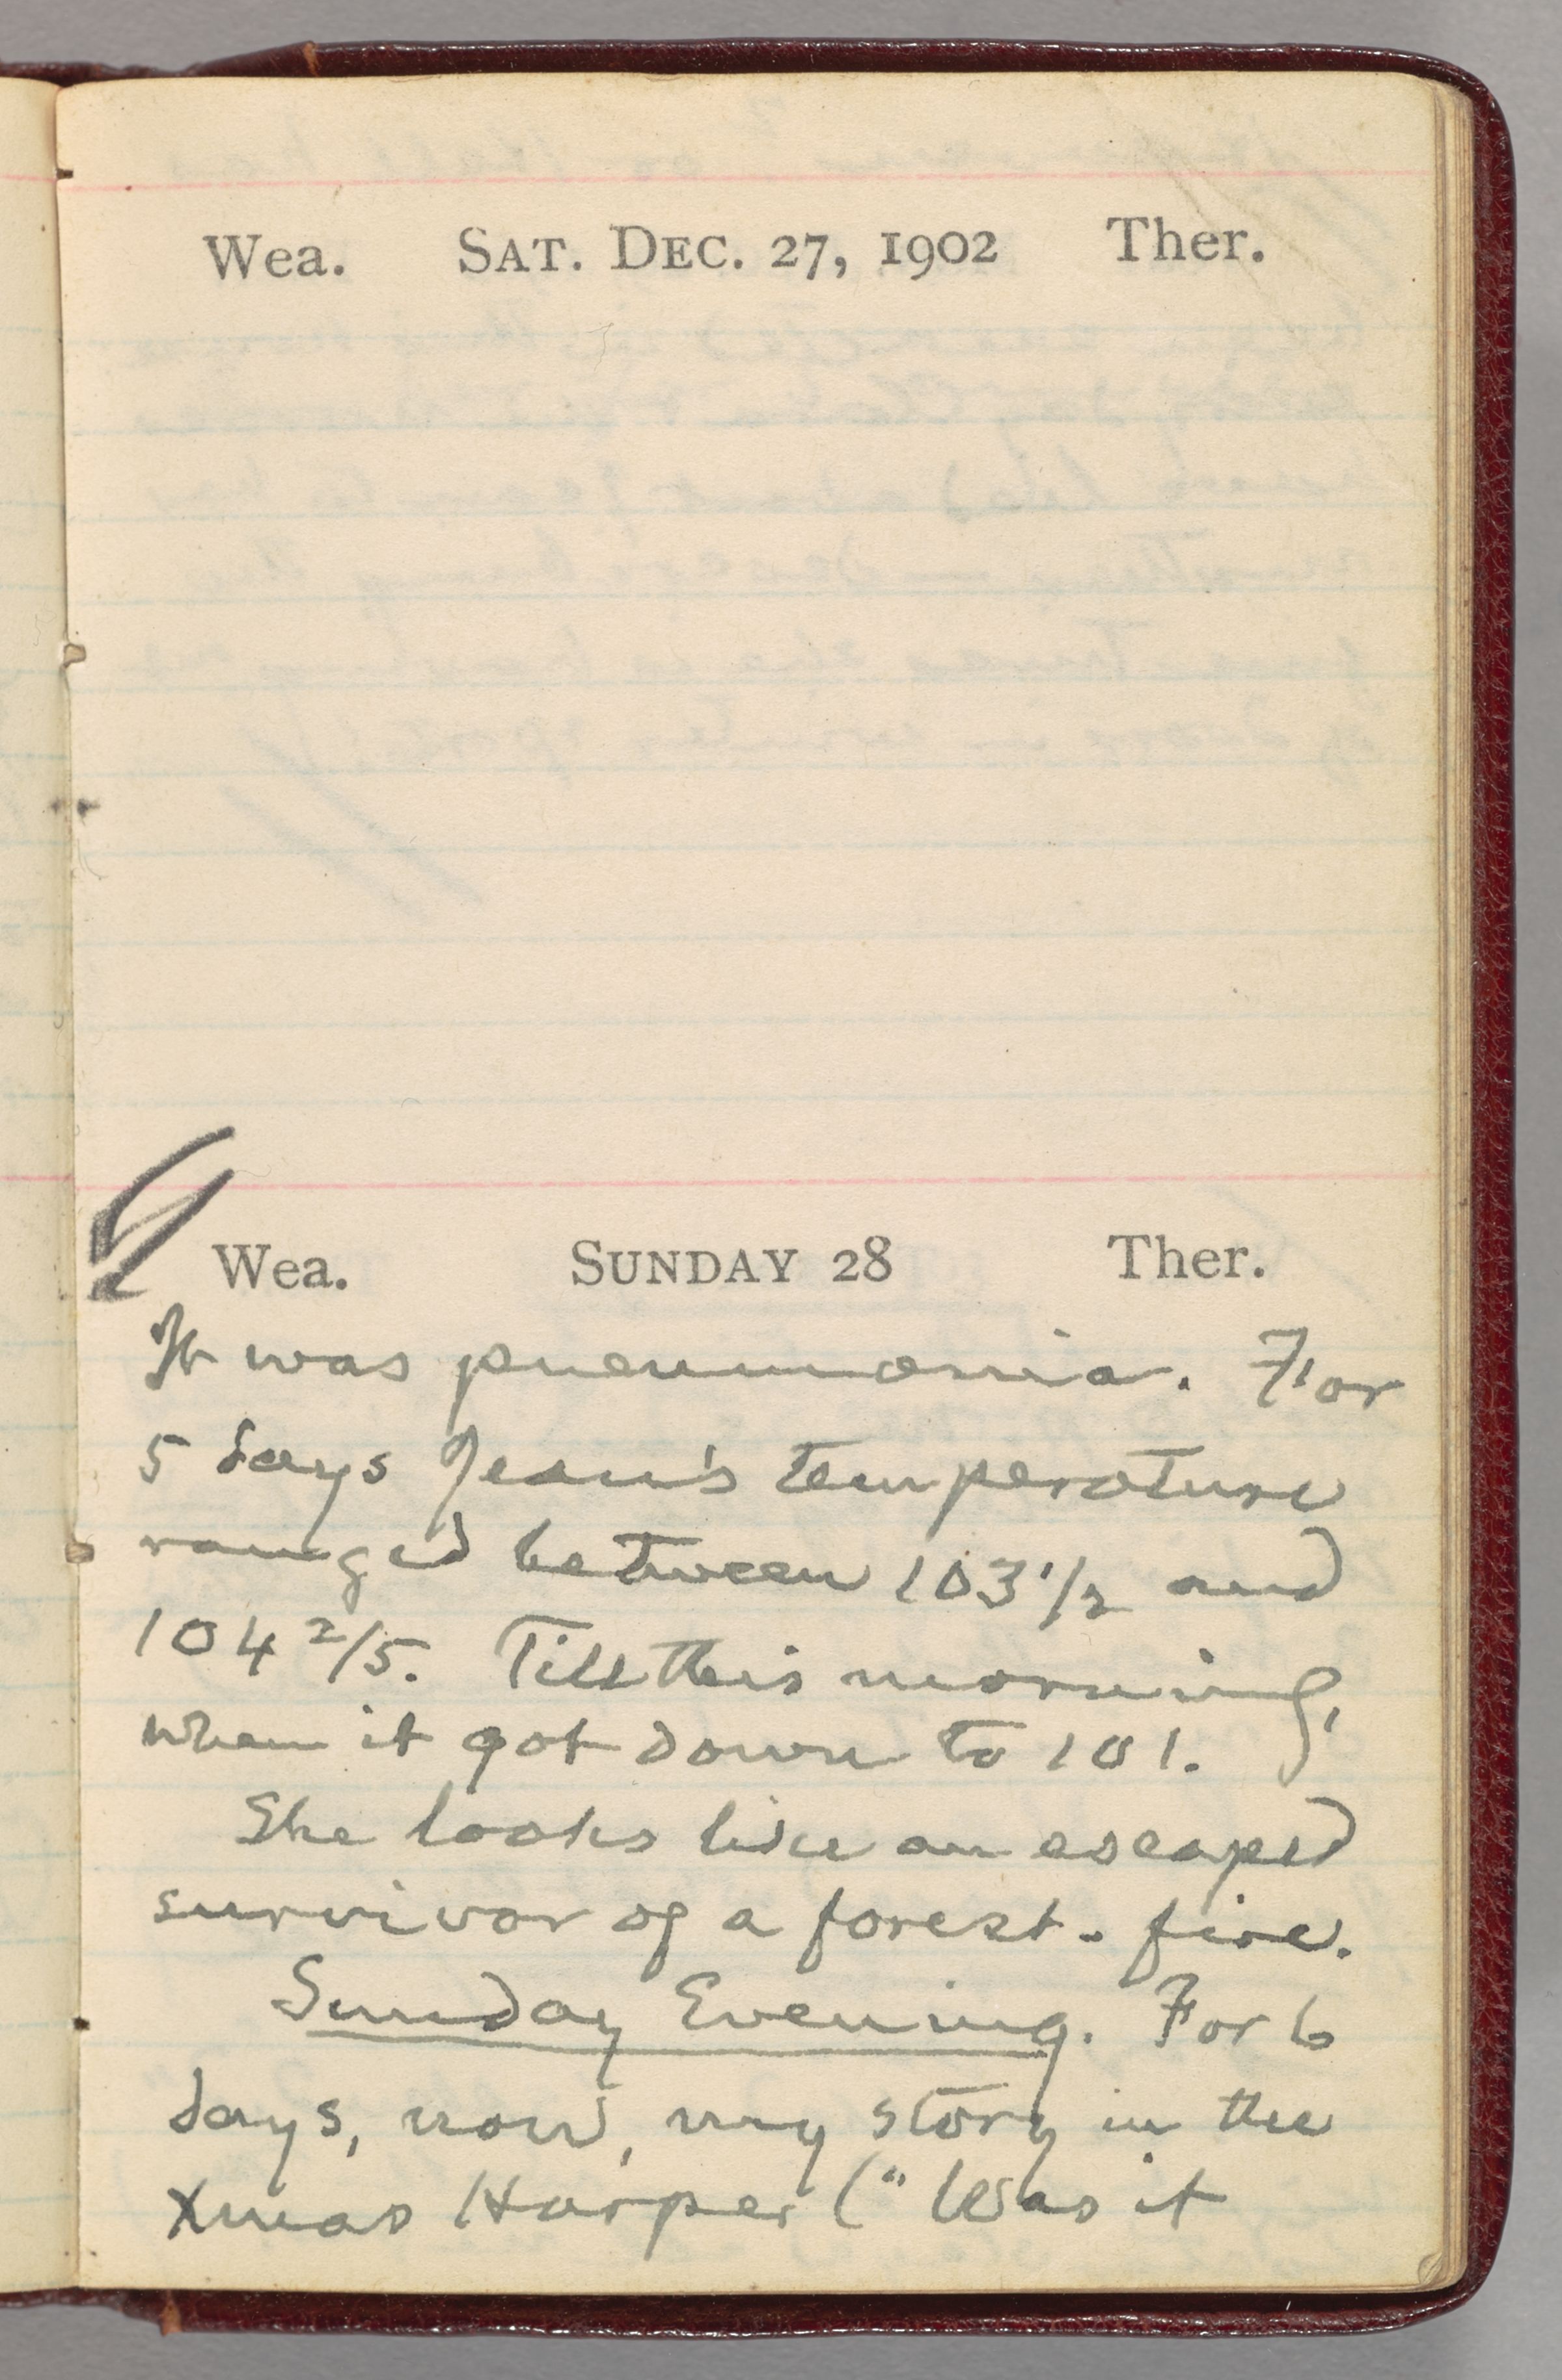 Wea. SAT. DEC. 27, 1902 Ther.
Wea. SUNDAY 28 Ther.
It was pneumonia. For
5 days Jean's temperature
ranged between 103 1/2 and
104 2/5. Till this morning,
when it got down to 101.
She looks like an escaped
survivor of a forest-fire.
Sunday Evening. For 6
days, now, my story in the
Xmas Harper ("Was it